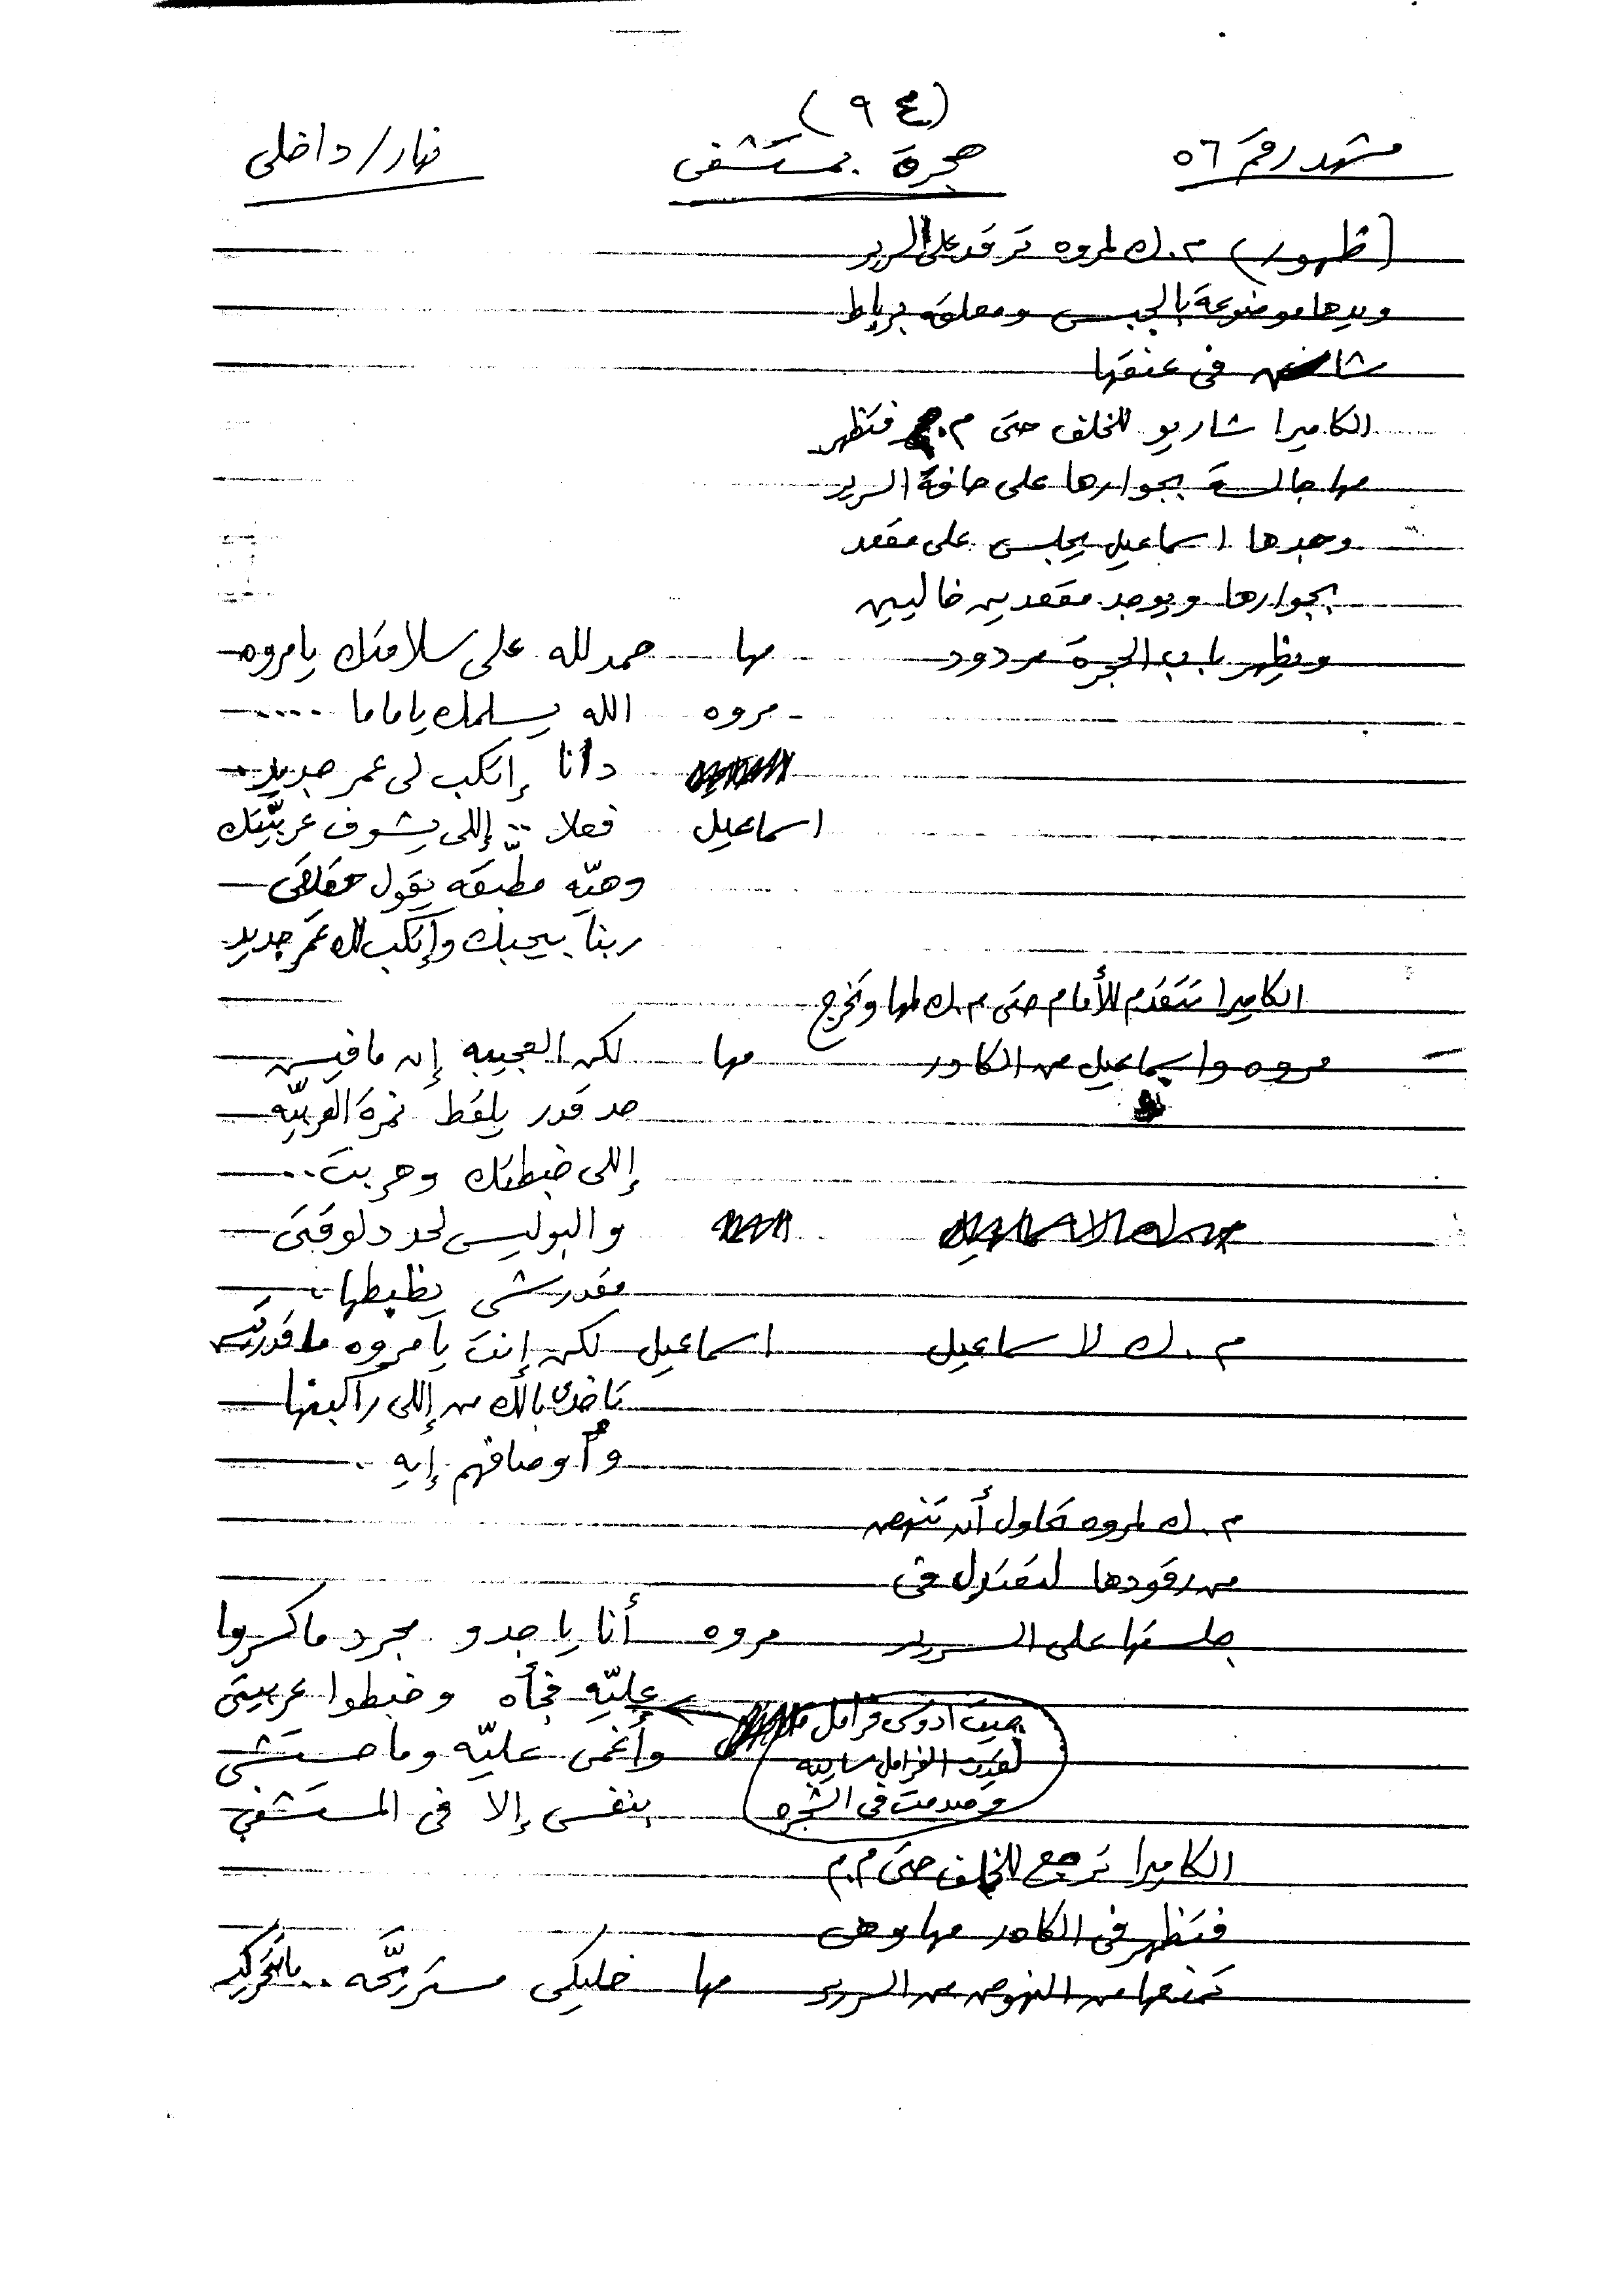 (٩٤)
مشهد رقم ٥٦ حجرة بمستشفى نهار/داخلى
(ظهور) م.ك لمروه ترقد على السرير
ويدها موضوعة بالجبس ومعلقه برباط
شاش فى عنقها
الكاميرا شاريو للخلف حتى م. فتظهر
مها جالسة بجوارها على حافة السرير
وجدها اسماعيل يجلس على مقعد
بجوارها ويوجد مقعدين خاليين
ويظهر باب الحجرة مردود مها حمدلله على سلامتك يامروه
مروه الله يسلمك ياماما .....
دانا إتكب لى عمر جديد.
اسماعيل فعلا .. إللى يشوف عربيّتك
وهيّه مطبّقه يقول
ربنا بيحبك وإتكب لك عمر جديد
الكاميرا تتقدم للأمام حتى م.ك لمها وتخرج
مروه واسماعيل من الكادر مها لكن العجيبه إن مافيش
حد قدر يلقط نمرة العربيّه
إللى خبطتك وهربت..
والبوليس لحد دلوقتى
مقدرشى يظبطها.
م.ك لاسماعيل اسماعيل لكن إنت يامروه ماقدرتيش
تاخدى بالك من إللى راكبينها
وأوصافهم إيه.
م.ك لمروه تحاول أن تنهض
من رقودها لتعتدل فى
جلستها على السرير مروه أنا ياجدو مجرد ماكسروا
عليّه فجأه وخبطوا عربيتى
جيت ادوس فرامل
لقيت الفرامل سايبه
وصدمت فى الشجره
وأغمى عليّه وماحستشى
بنفسى إلا فى المستشفى
الكاميرا ترجع للخلف حتى م.م
فتظهر فى الكادر مها وهى
تمنعها من النهوض من السرير مها خليكى مستريّحه.. ماتتحركيش